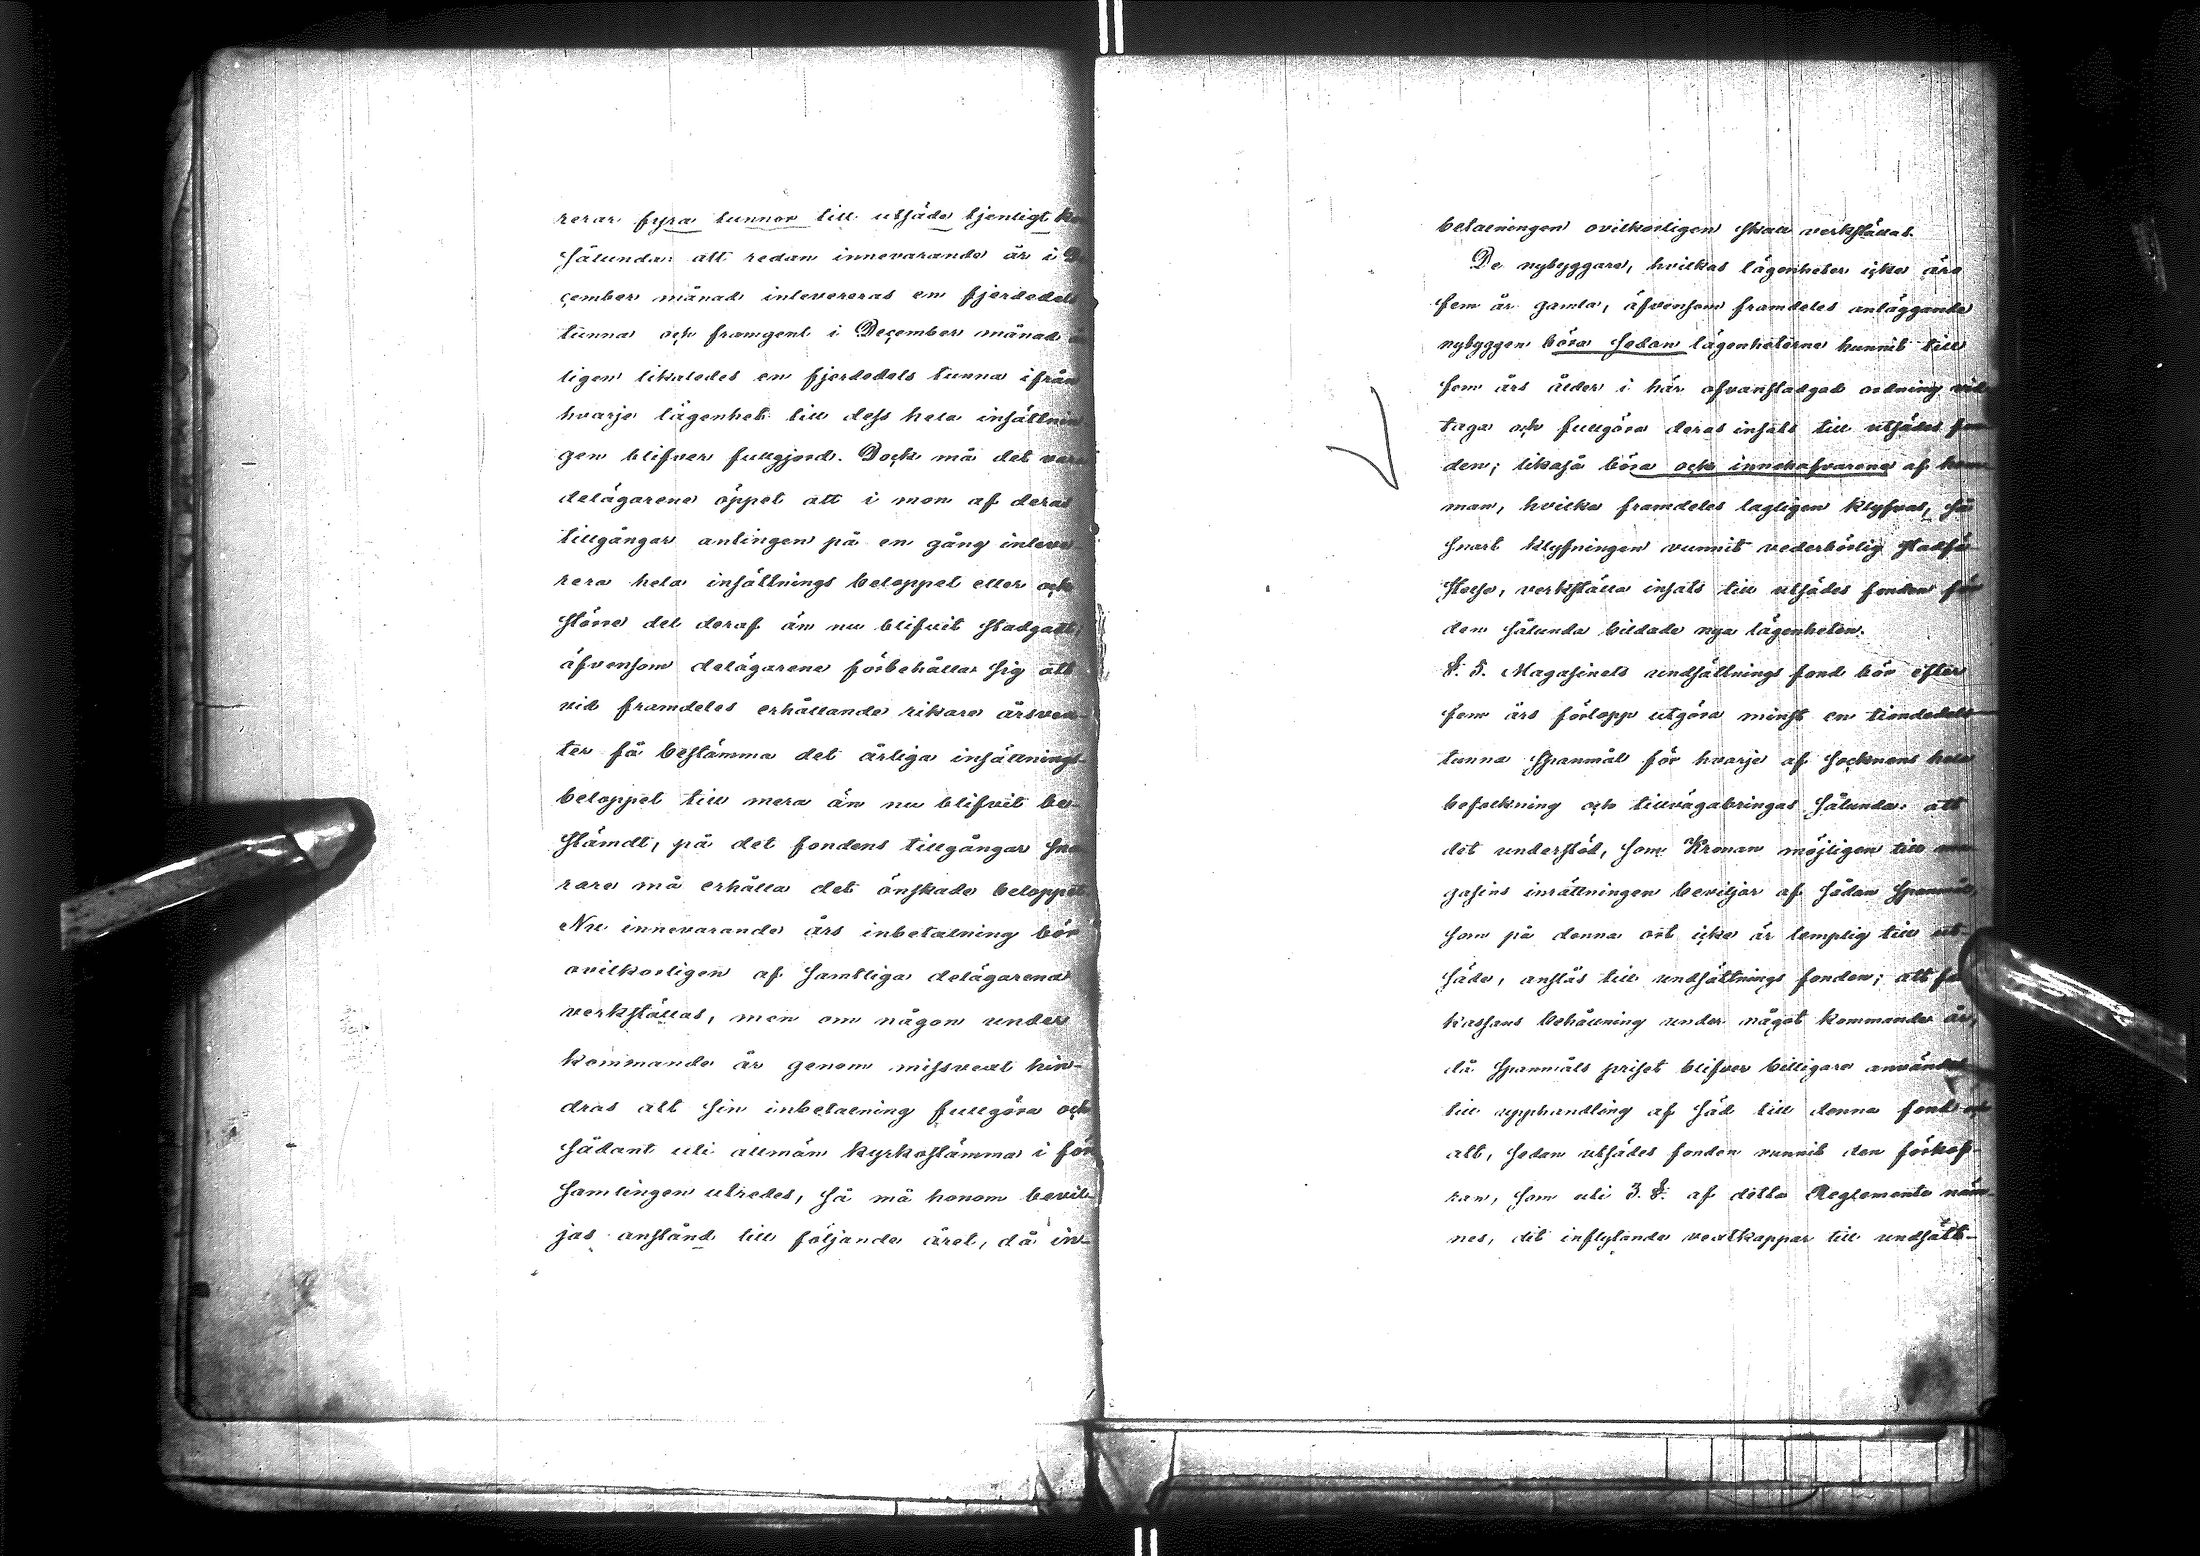 rerar fyra tunnor till utsäde tjenligt
sålunda: att redan innevarande år i De
cember månad inlevereras en fjerdedels
tunna och framgent i December månad
ligen likaledes en fjerdedels tunna ifrån
hvarje lägenhet till dess hela insättnin
gen blifver fullgjord. Dock må det vara
delägarene öppet att i mon af deras
tillgångar antingen på en gång inleve-
rera hela insättnings beloppet eller ock
större del deraf än nu blifvit stadgadt,
äfvensom delägarene förbehålla sig att
vid framdeles erhållande rikare årsvex-
ter få bestämma det årliga insättnings-
beloppet till mera än nu blifvit be-
stämdt, på det fondens tillgångar sna
rare må erhålla det önskade beloppet
Nu innevarande års inbetalning bör
ovilkorligen af samtliga delägarena
verkställas, men om någon under
kommande år genom missvext hin-
dras att sin inbetalning fullgöra och
sådant uti allmän kyrkostämma i för
samlingen utredes, så må honom bevil-
jas anstånd till följande året, då in-
betalningen ovilkorligen skall verkställas.
De nybyggare, hvilkas lägenheter icke äro
fem år gamla, äfvensom framdeles anläggande
nybyggen böra sedan lägenheterne hunnit till
fem års ålder i här ofvanstadgad ordning vid
taga och fullgöra deras insats till utsädes fon
den; likaså böra ock innehafvarene af hem-
man, hvilka framdeles lagligen klyfvas, så
snart klyfningen vunnit vederbörlig stadfä-
stelse, verkställa insats till utsädes fonden för
dem sålunda bildade nya lägenheten.
§. 5. Magasinets undsättnings fond bör efter
fem års förlopp utgöra minst en tiondedels
tunna Spanmål för hvarje af Socknens hela
befolkning och tillvägabringas sålunda: att
det understöd, som Kronan möjligen till ma
gasins inrättningen beviljar af sådan Spanmål,
som på denna ort icke är lemplig till ut-
säde, anslås till undsättnings fonden; att
kassans behållning under något kommande år,
då Spanmåls priset blifver billigare användes
till upphandling af Säd till denna fond och
att, sedan utsädes fonden vunnit den förkof-
ran, som uti 3. §. af detta Reglemente näm-
nes, dit inflytande vextkappar till undsätt-